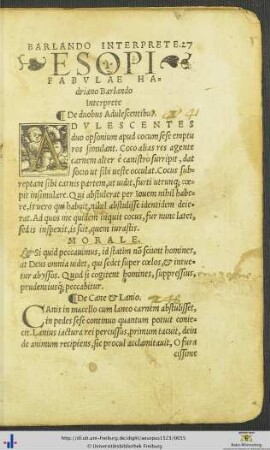 BARLANDO INTERPRETE. 27
ESOPI
FABVLAE HA-
driano Barlando
Interprete
De duobus Adulescentibus.
ADVLESCENTES
duo opsonium apud cocum sese emptu
ros simulant. Coco alias res agente
carnem alter è canistro surripit, dat
socio ut sibi ueste occulat. Cocus sub
reptam sibi carnis partem, ut uidit, furti utrunque cœ
pit insimulare. Qui abstulerat per Iouem nihil habe
re, is uero qui habuit, nihil abstulisse identidem deie
rat. Ad quos me quidem inquit cocus, fur nunc latet,
sed is inspexit, is scit, quem iurastis.
MORALE.
Si quid peccauimus, id statim nō sciunt homines,
at Deus omnia uidet, qui sedet super cœlos, & intue
tur abyssos. Quod si cogitent homines, suppressius,
prudentiusque peccabitur.
De Cane & Lanio.
CAnis in macello cum lanio carnem abstulisset,
in pedes sese continuo quantum potuit conie
cit. Lanius iactura rei percussus, primum tacuit, dein
de animum recipiens, sic procul acclamitauit, O fura
cissime
http://dl.ub.uni-freiburg.de/diglit/aesopus1523/0015
© Universitätsbibliothek Freiburg
Baden-Württemberg